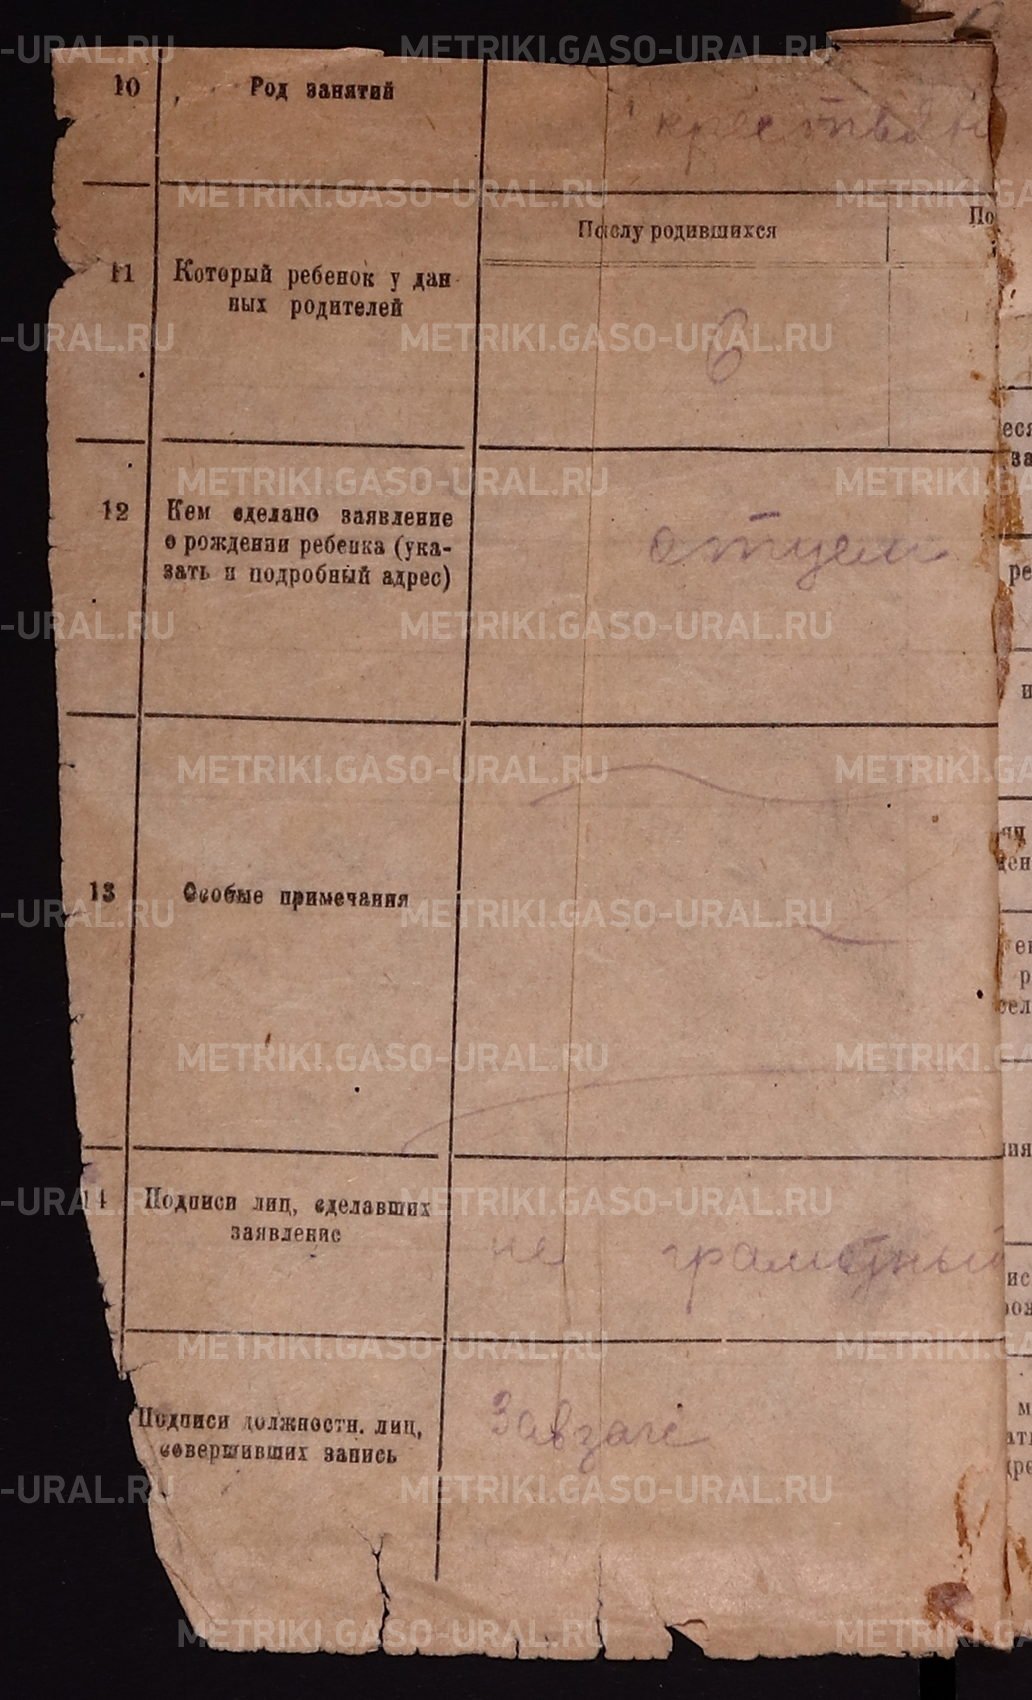 10 Род занятий
крестьян
11 Который ребенок у дан-
ных родителей
По числу родившихся
По
6
12 Кем сделано заявление
о рождении ребенка (ука-
зать и подробный адрес)
отцем
13 Особые примечания
14 Подписи лиц, сделавших
заявление
не грамотный
Подписи должностн. лиц,
совершивших запись
METRIKI.GASO-URAL.RU